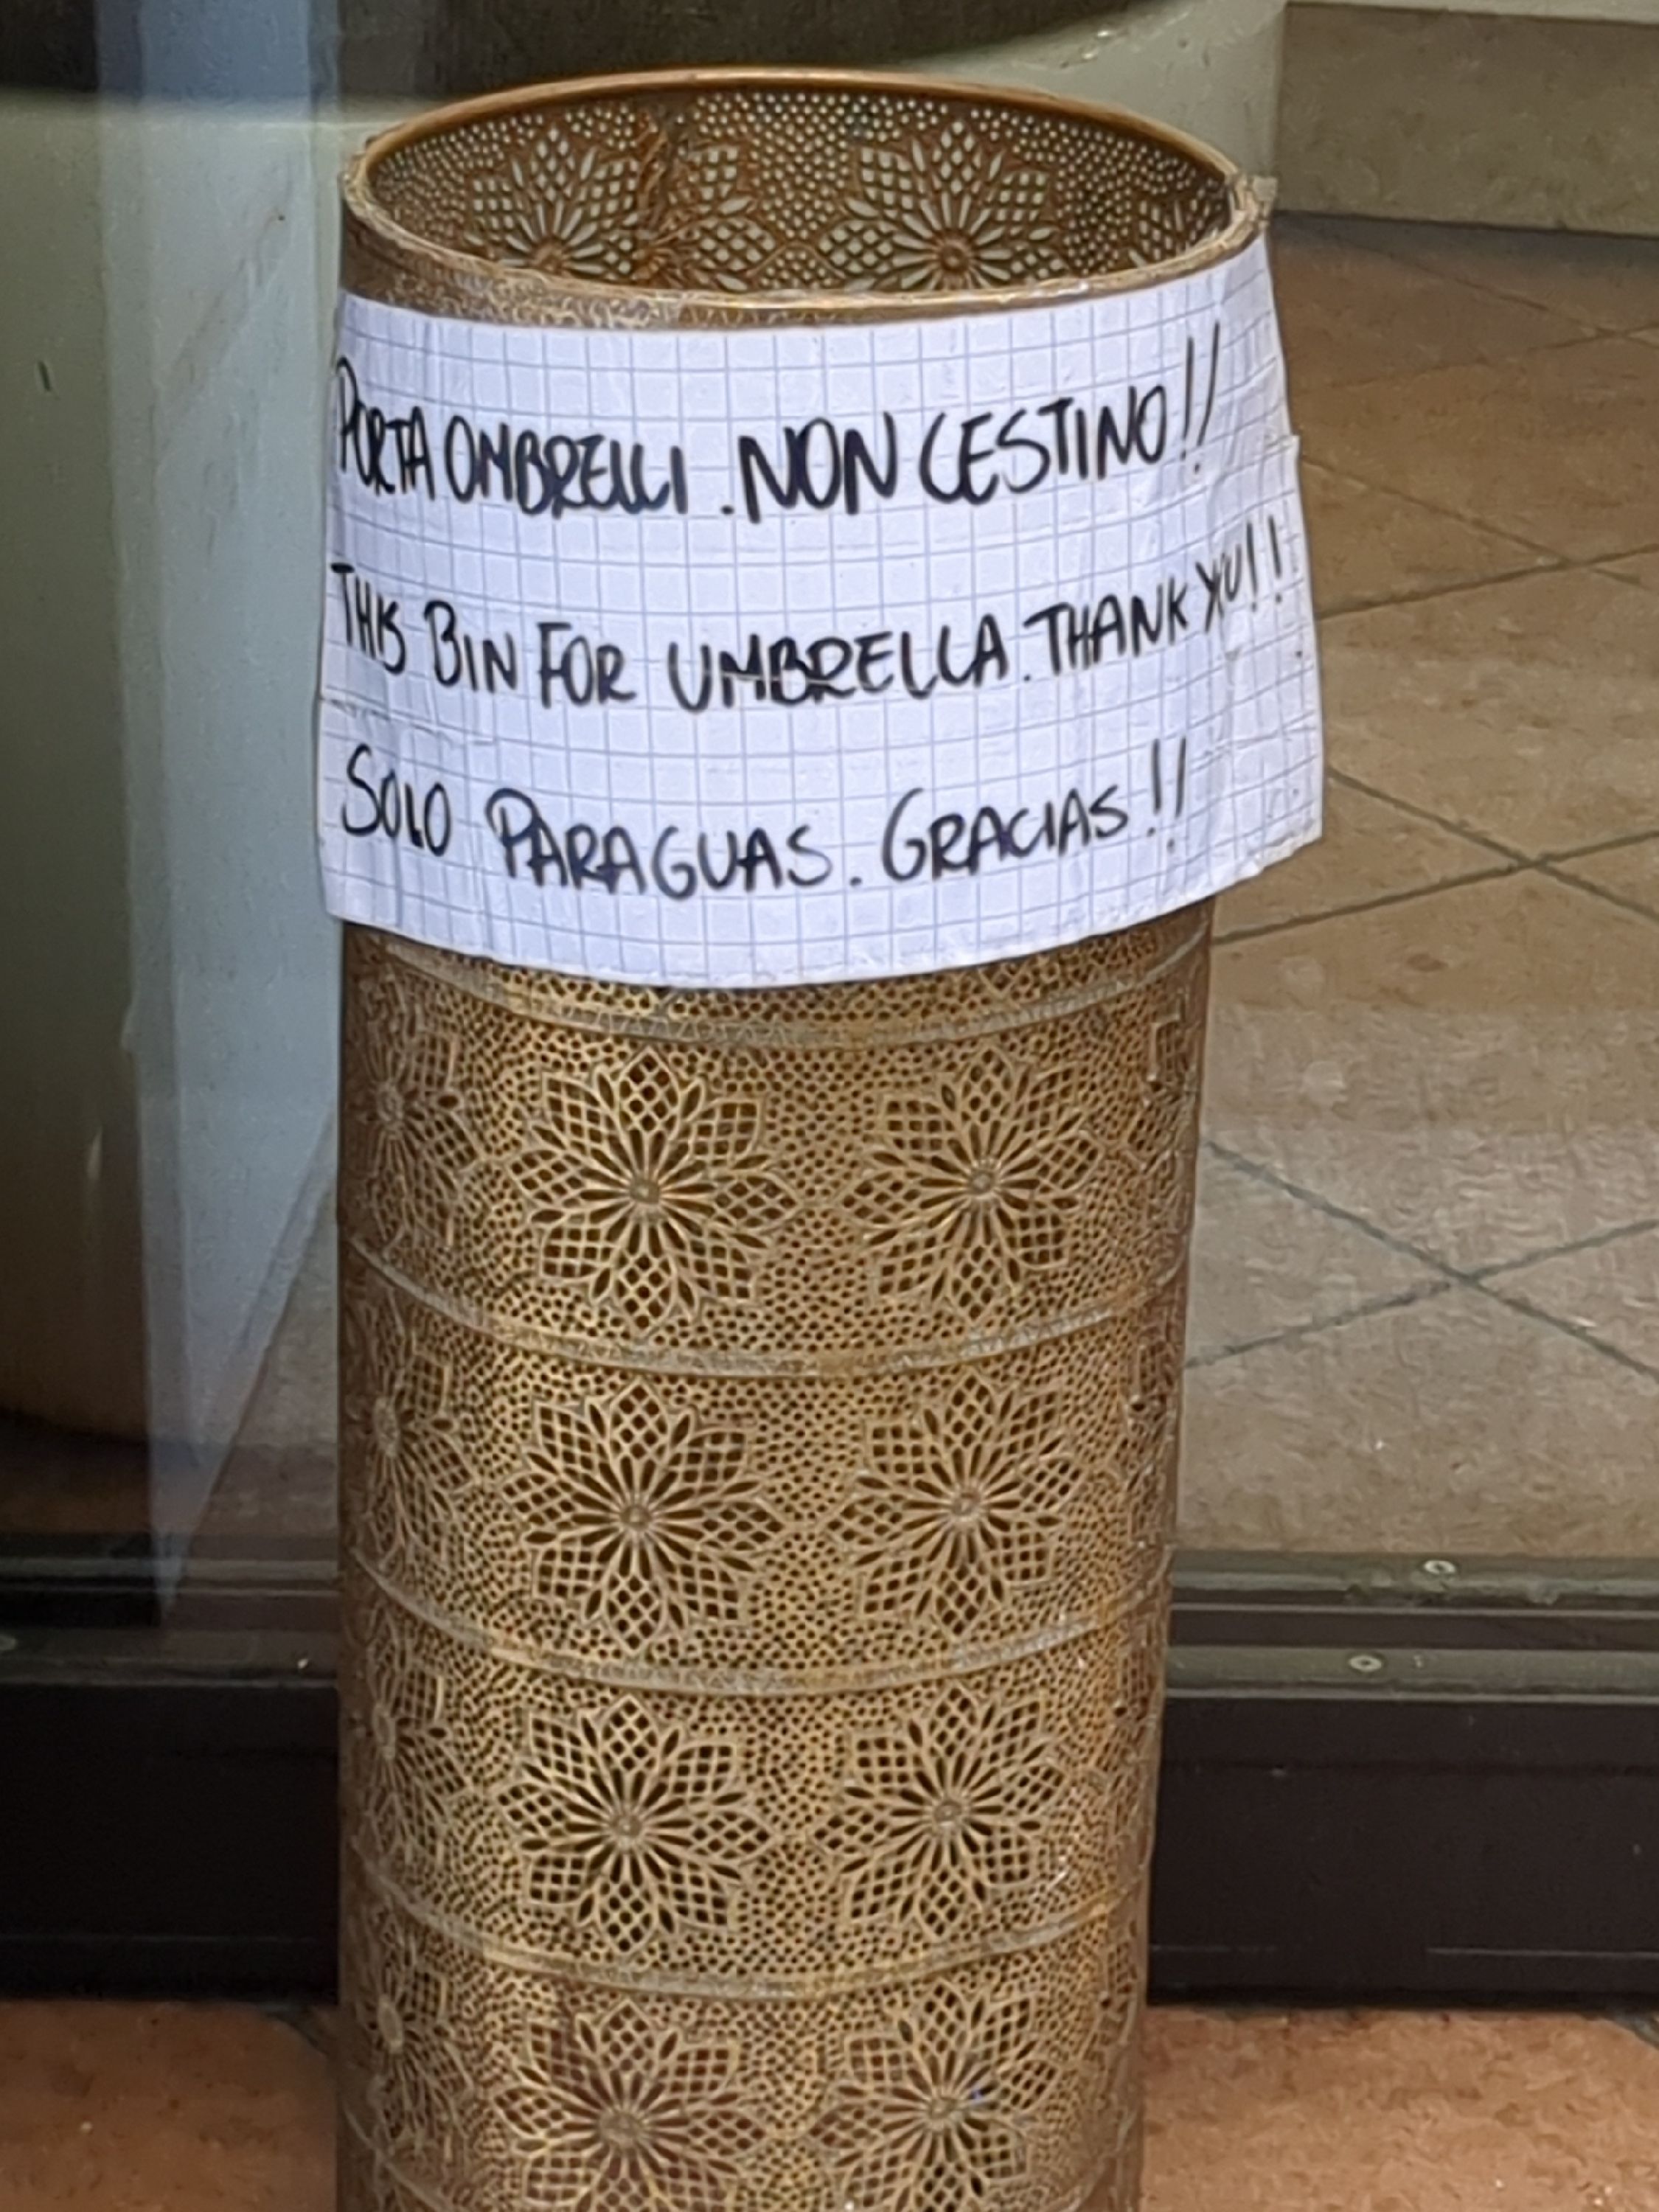 PORTA OMBRELLI. NON CESTINO!!
THIS BIN FOR UMBRELLA. THANK YOU!!
SOLO PARAGUAS. GRACIAS!!